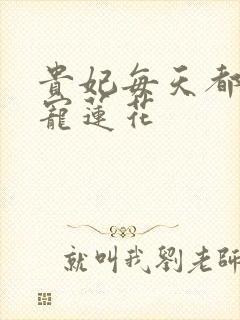 貴妃每天都
寵蓮花
就叫我劉老師